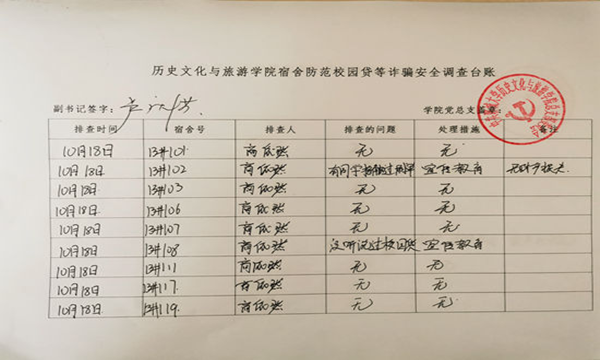 历史文化与旅游学院宿舍防范校园贷等诈骗安全调查台账
副书记签字： 学院党总支盖章：
排查时间 宿舍号 排查人 排查的问题 处理措施 备注
10月18日 13#101 商依然 无 无
10月18日 13#102 商依然 宣传教育
10月18日 13#103 商依然 无 无
10月18日 13#106 商依然 无 无
10月18日 13#107 商依然 无 无
10月18日 13#108 商依然 没听说过校园贷 宣传教育
10月18日 13#111 商依然 无 无
10月18日 13#117. 商依然 无 无
10月18日 13#119. 商依然 无 无